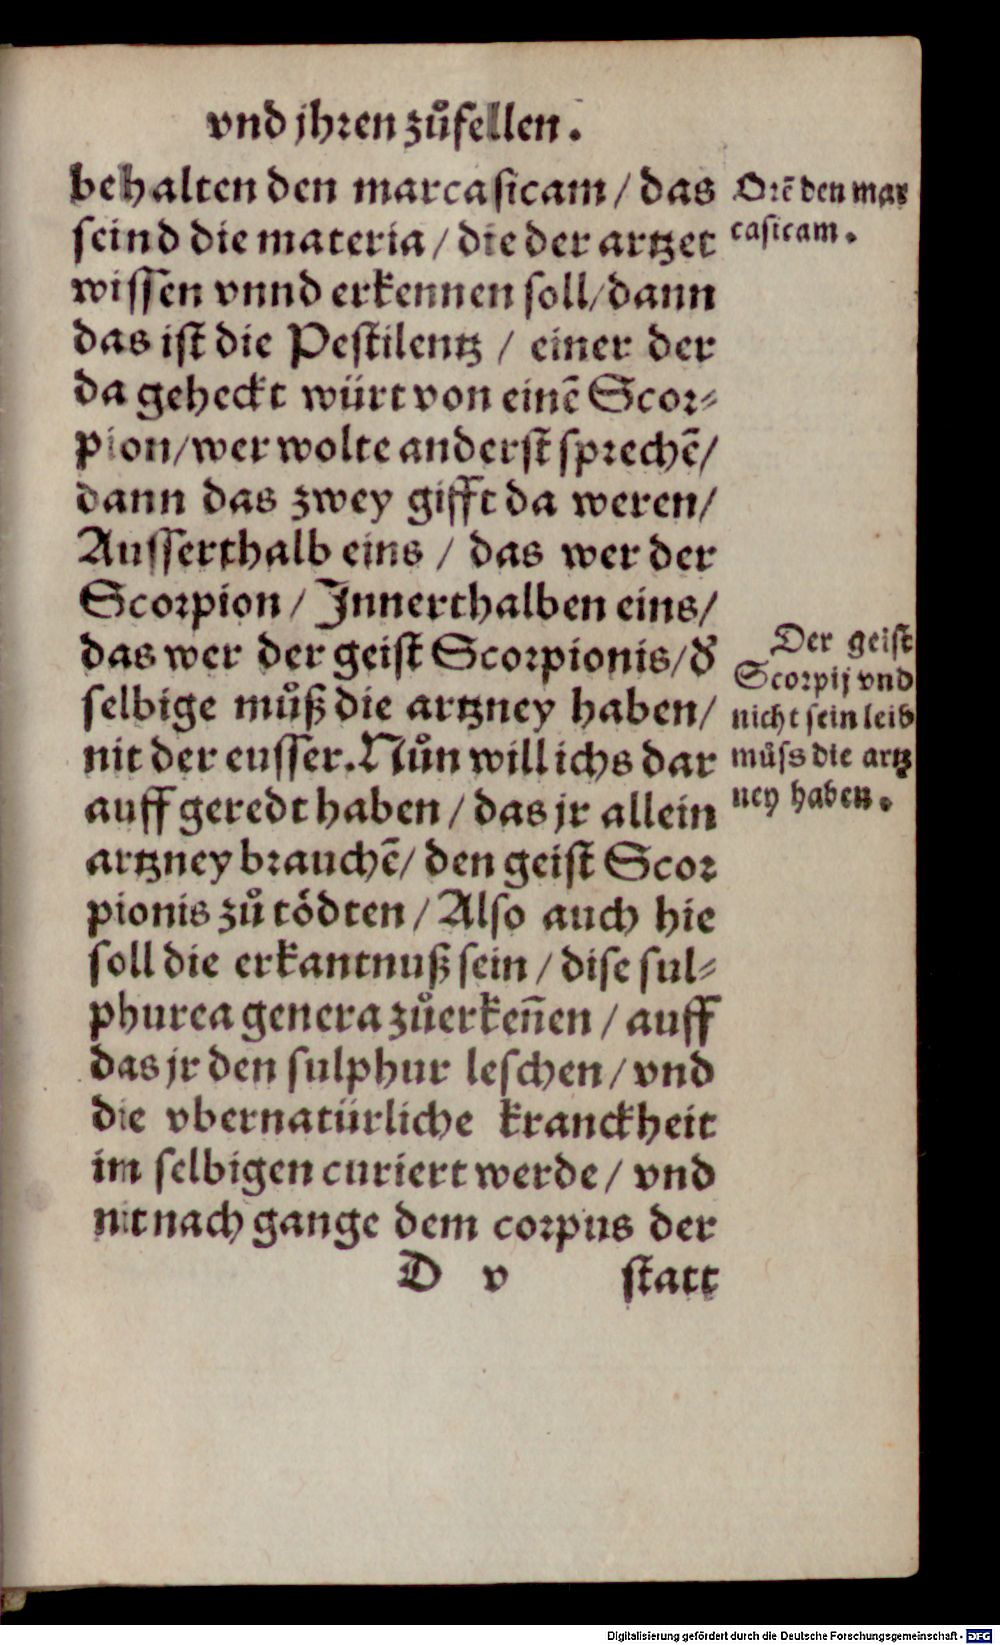 vnd jhren zuͦfellen.
behalten den marcasicam / das
seind die materia / die der artzet
wissen vnnd erkennen soll / dann
das ist die Pestilentz / einer der
da geheckt würt von einē Scor⸗
pion / wer wolte anderst sprechē /
dann das zwey gifft da weren /
Ausserthalb eins / das wer der
Scorpion / Innerthalben eins /
das wer der geist Scorpionis / d̕
selbige muͦß die artzney haben /
nit der eusser. Nuͦn will ichs dar
auff geredt haben / das jr allein
artzney brauchē / den geist Scor
pionis zuͦ tödten / Also auch hie
soll die erkantnuß sein / dise sul⸗
phurea genera zuͦerkeñen / auff
das jr den sulphur leschen / vnd
die vbernatürliche kranckheit
im selbigen curiert werde / vnd
nit nach gange dem corpus der
D v statt
Orē den mar
casicam.
Der geist
Scorpij vnd
nicht sein leib
muͦss die artz
ney haben.
Digitalisierung gefördert durch die Deutsche Forschungsgemeinschaft - DFG